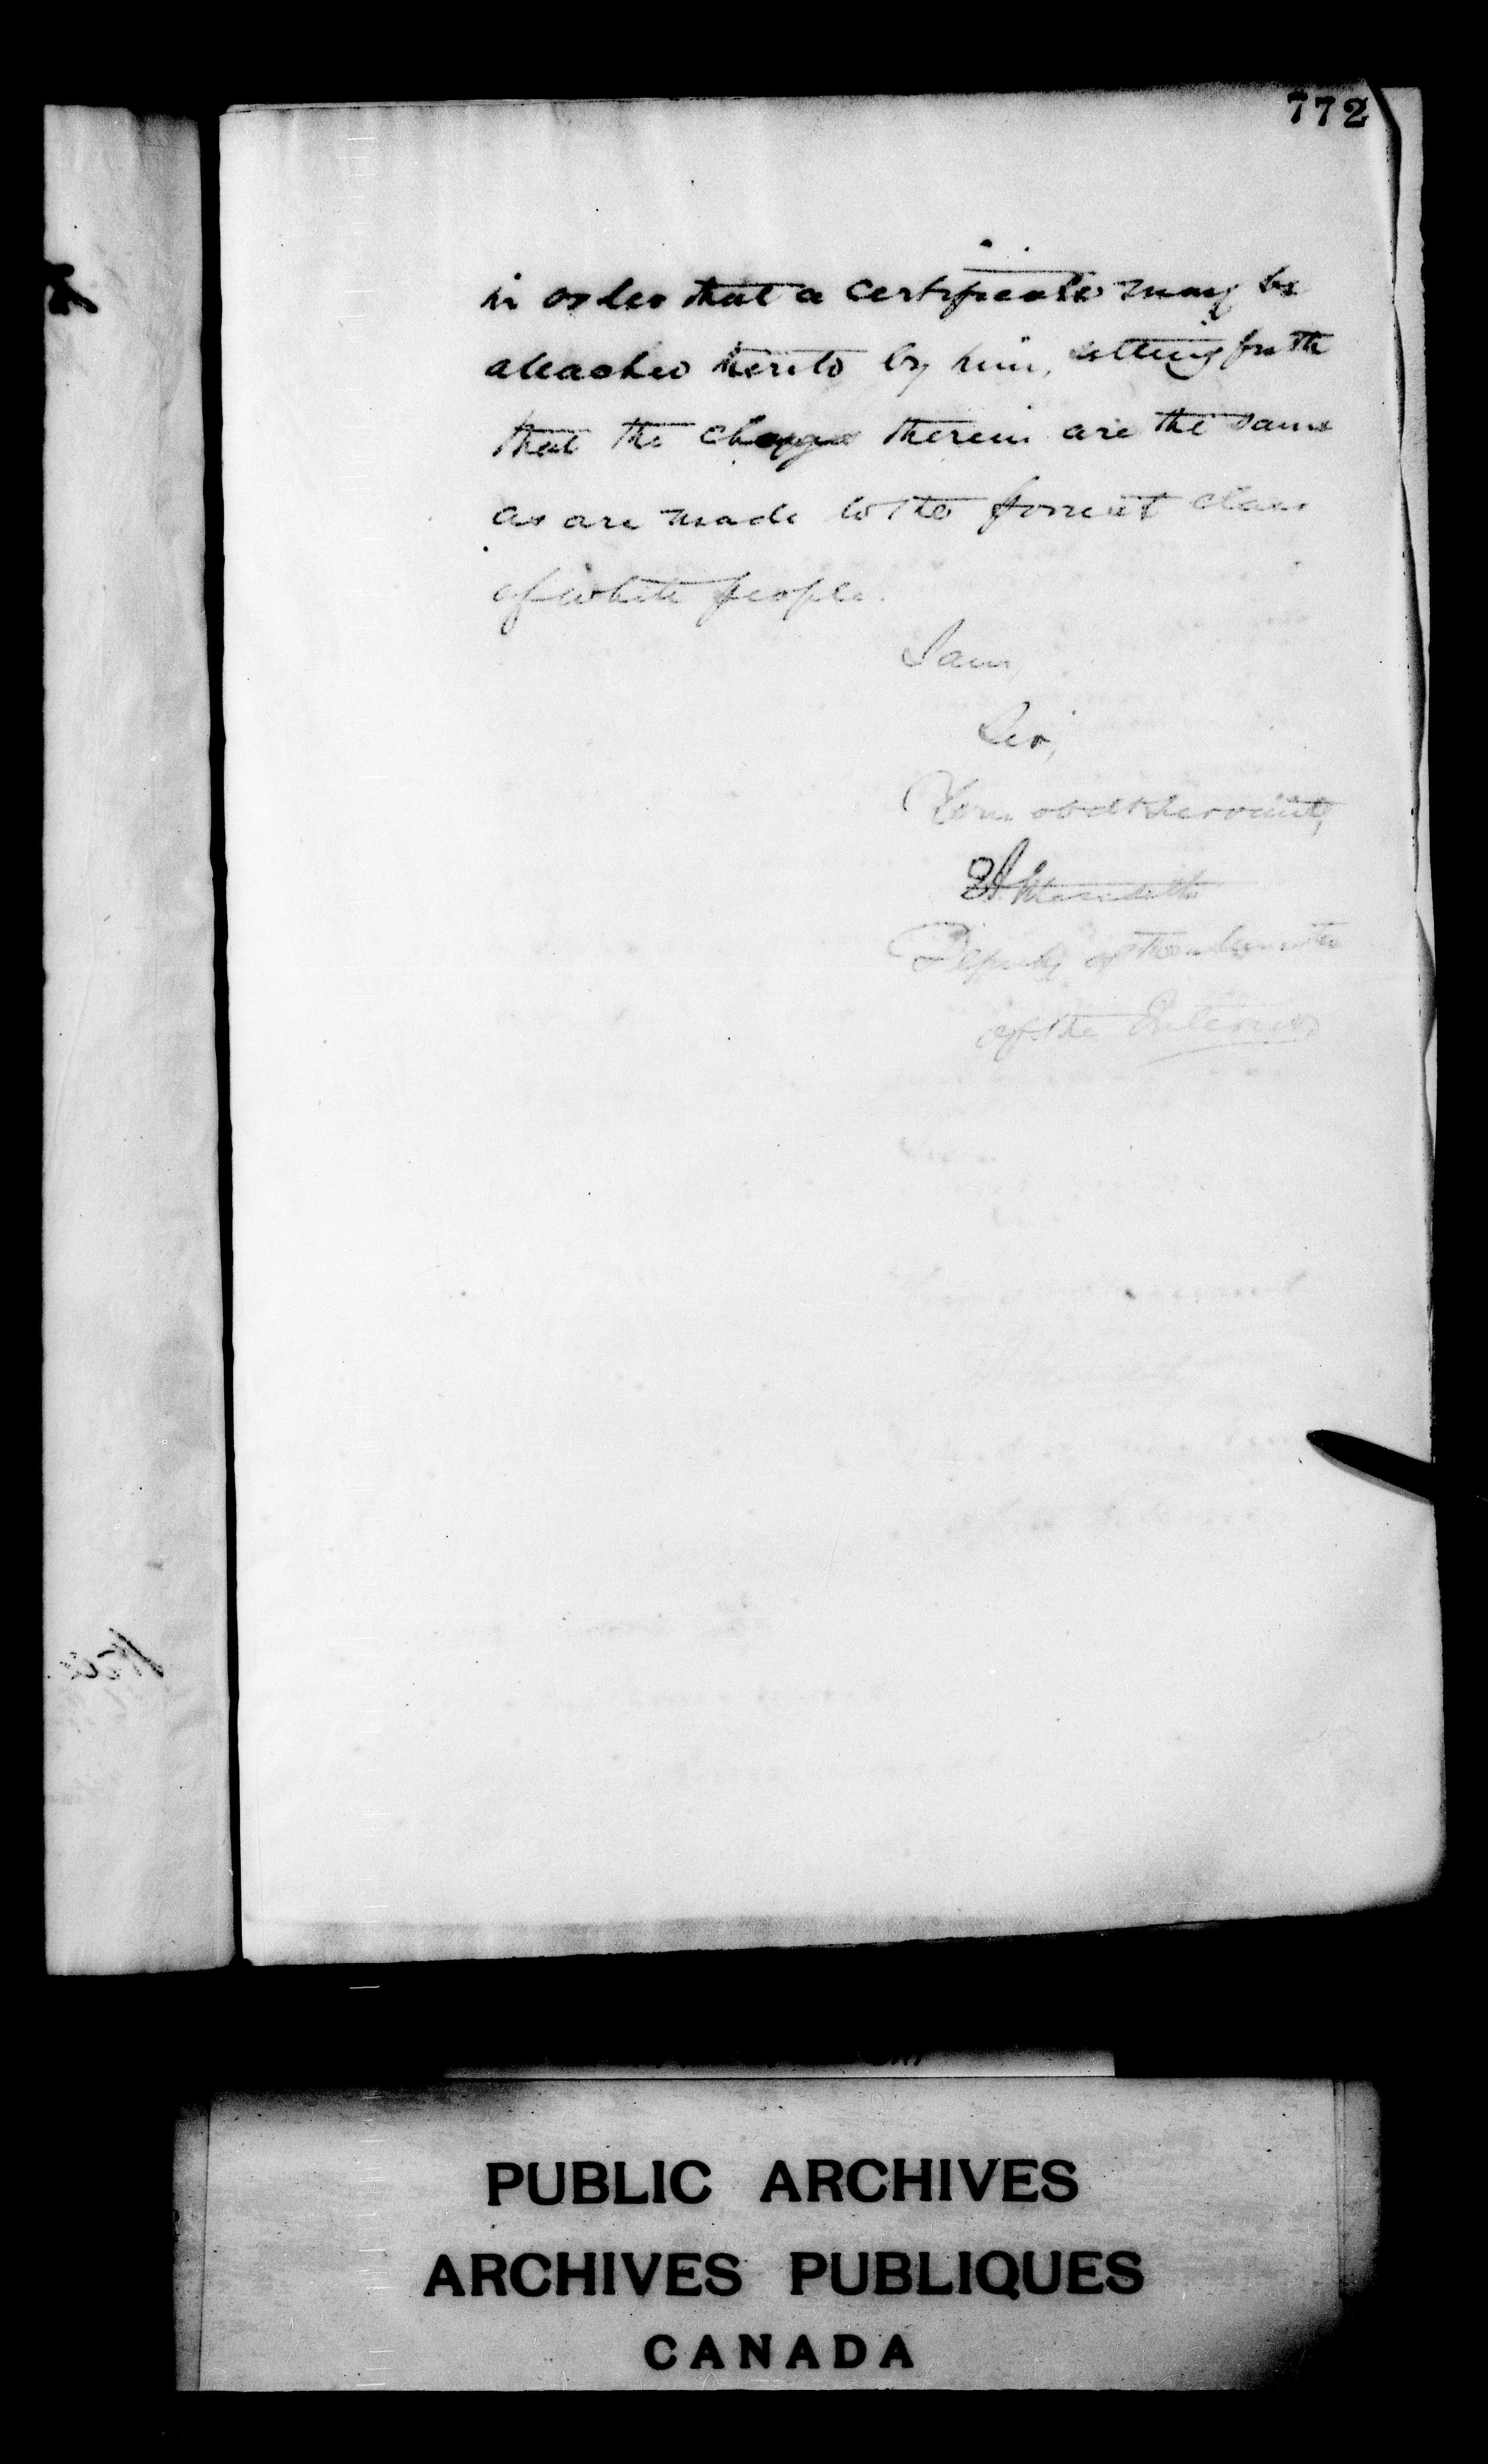 772
in order that a certificate may be
attached thereto by him, setting forth
that the charges therein are the same
as are made to the poorest class
of white people.
I am,
Sir,
Your obedt servant,
E A Meredith
Deputy of the Minister
of the Interior
PUBLIC ARCHIVES
ARCHIVES PUBLIQUES
CANADA